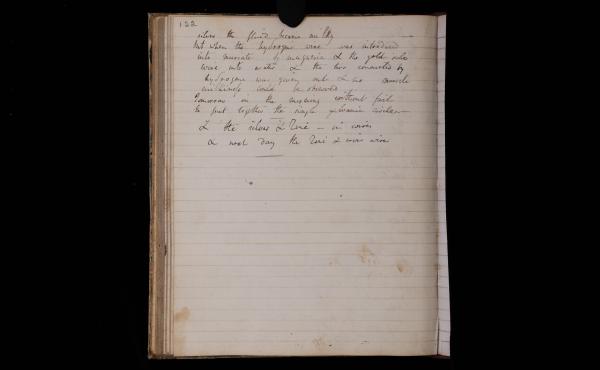 122
silver the fluid became milky
but when the hydrogene wire was introduced
into muriate of magnesia & the gold
wire into water & the two connected by
hydrogene was given out & no muscle
could be observed
Tomorrow in the morning without fail
to put together the single galvanic circles —
& the silver & Zinc — in
& next day the Zinc & wire